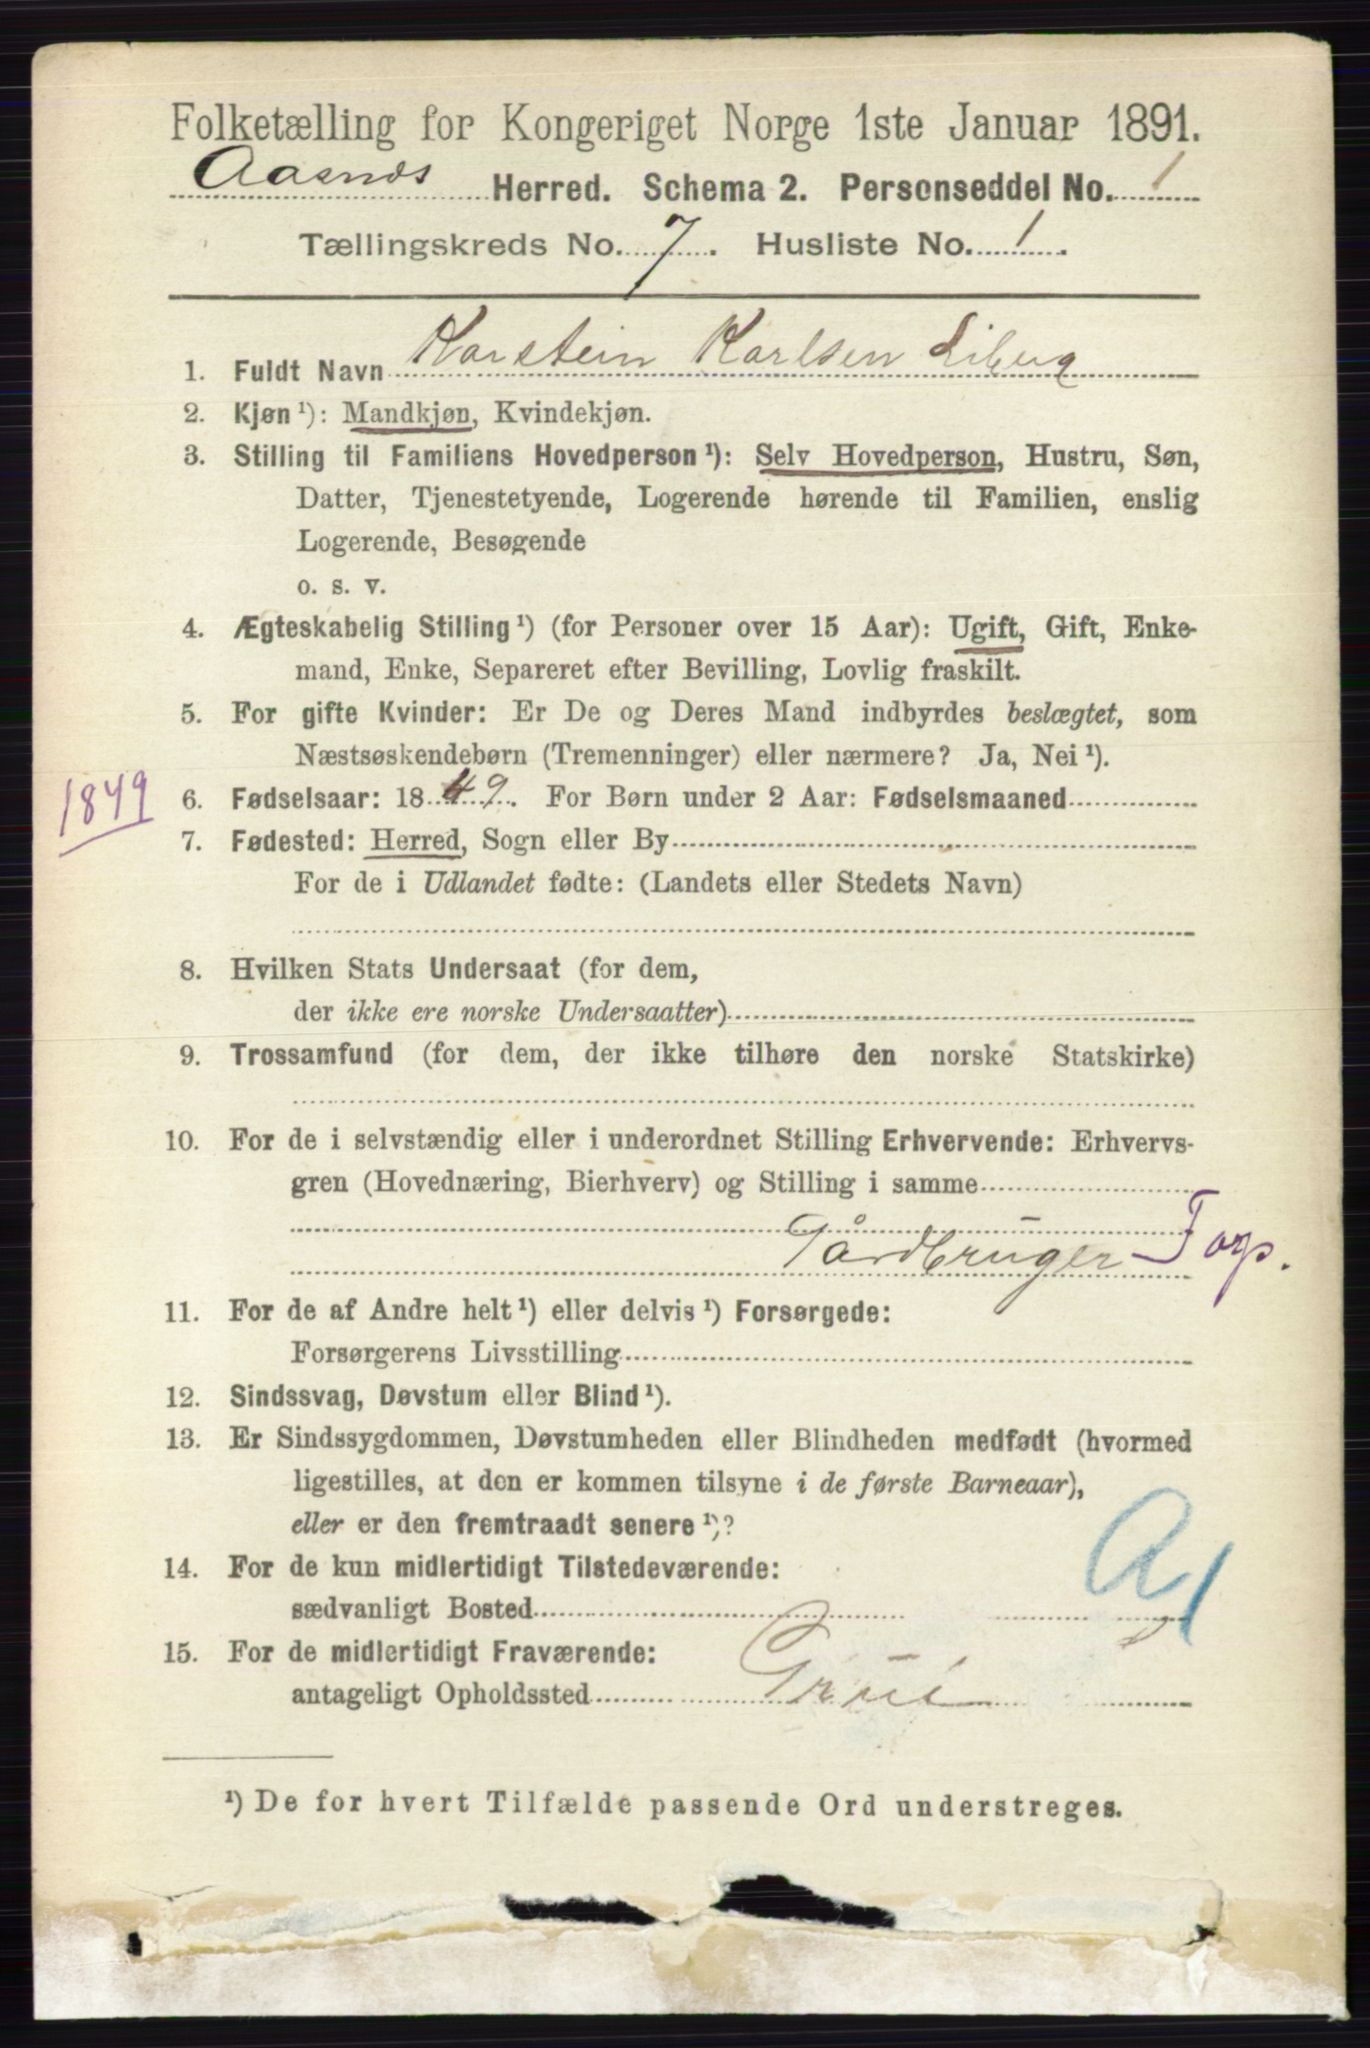 Folketælling for Kongeriget Norge 1ste Januar 1891.
Aasnæs Herred. Schema 2. Personseddel No. 1
Tællingskreds No. 7. Husliste No. 1.
1. Fuldt Navn Karstein Karlsen Liberg
2. Kjøn ¹): Mandkjøn, Kvindekjøn.
3. Stilling til Familiens Hovedperson ¹): Selv Hovedperson, Hustru, Søn,
Datter, Tjenestetyende, Logerende hørende til Familien, enslig
Logerende, Besøgende
o. s. v.
4. Ægteskabelig Stilling ¹) (for Personer over 15 Aar): Ugift, Gift, Enke-
mand, Enke, Separeret efter Bevilling, Lovlig fraskilt.
5. For gifte Kvinder: Er De og Deres Mand indbyrdes beslægtet, som
Næstsøskendebørn (Tremenninger) eller nærmere? Ja, Nei ¹).
1849 6. Fødselsaar: 1849. For Børn under 2 Aar: Fødselsmaaned
7. Fødested: Herred, Sogn eller By
For de i Udlandet fødte: (Landets eller Stedets Navn)
8. Hvilken Stats Undersaat (for dem,
der ikke ere norske Undersaatter)
9. Trossamfund (for dem, der ikke tilhøre den norske Statskirke)
10. For de i selvstændig eller i underordnet Stilling Erhvervende: Erhvervs-
gren (Hovednæring, Bierhverv) og Stilling i samme
Gårdbruger
11. For de af Andre helt ¹) eller delvis ¹) Forsørgede:
Forsørgerens Livsstilling
12. Sindssvag, Døvstum eller Blind ¹).
13. Er Sindssygdommen, Døvstumheden eller Blindheden medfødt (hvormed
ligestilles, at den er kommen tilsyne i de første Barneaar),
eller er den fremtraadt senere ¹)?
14. For de kun midlertidigt Tilstedeværende:
sædvanligt Bosted
15. For de midlertidigt Fraværende:
antageligt Opholdssted Grue
¹) De for hvert Tilfælde passende Ord understreges.